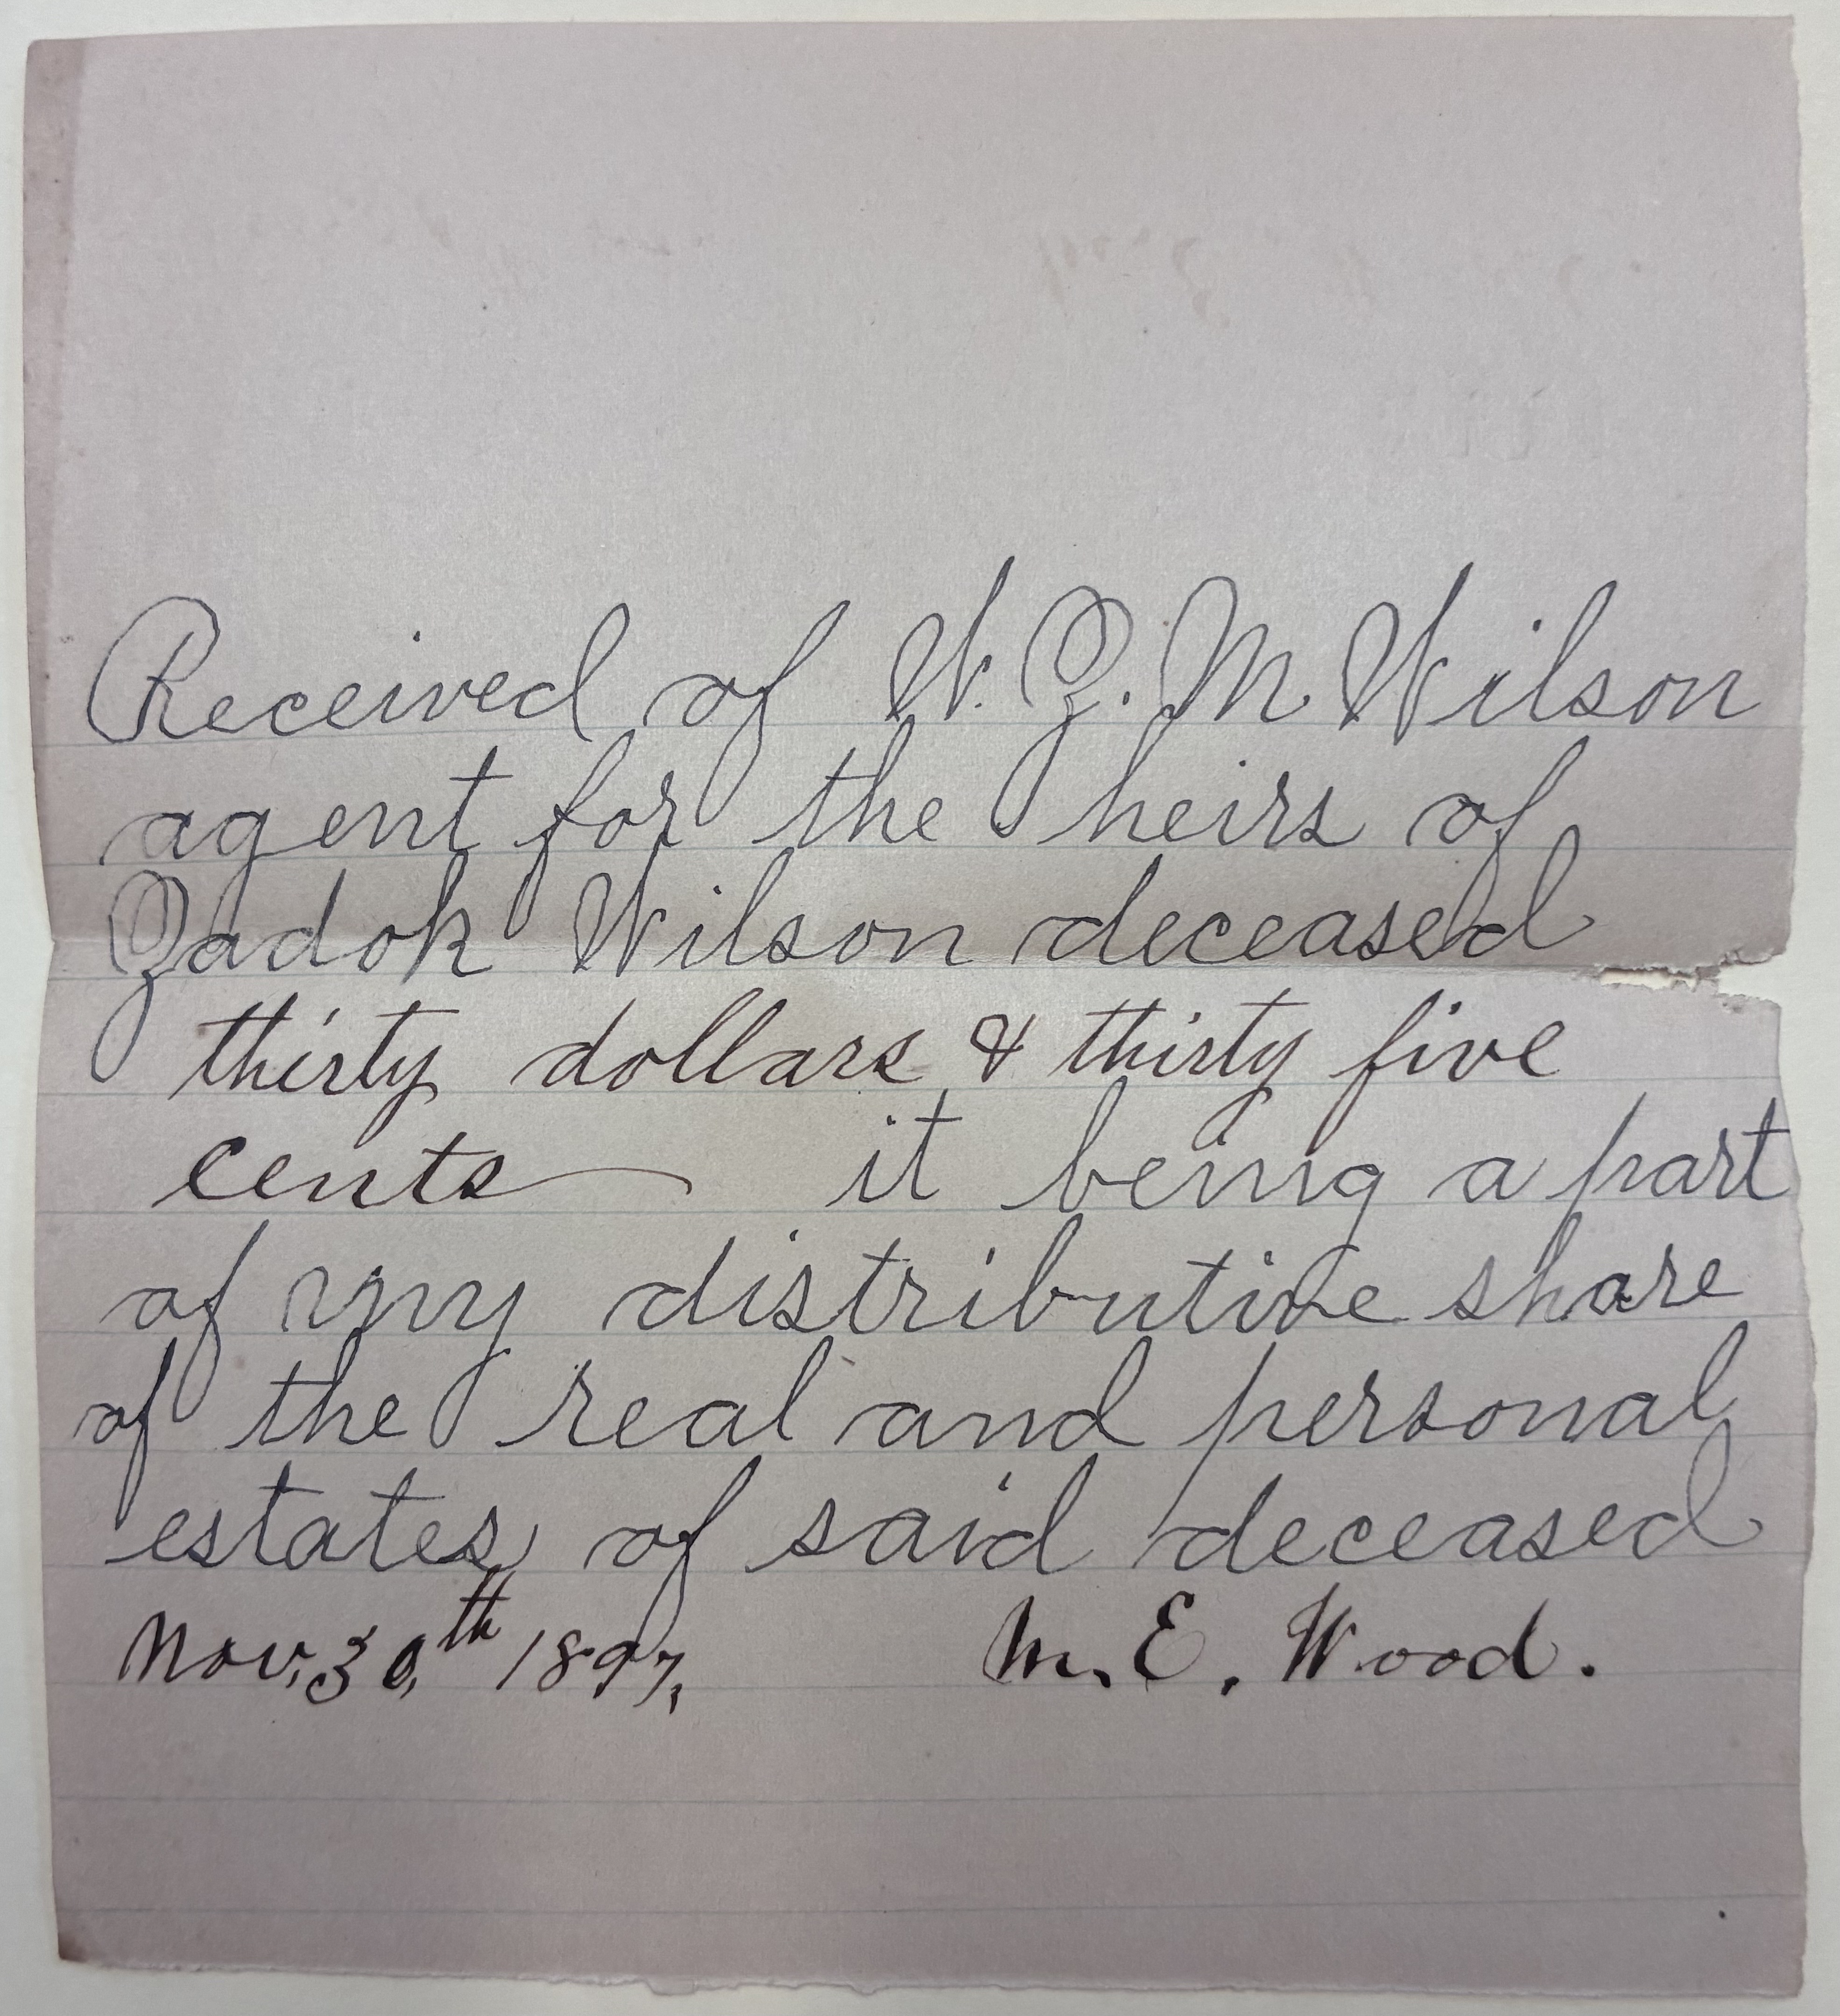 Received of W. Z. M. Wilson
agent for the heirs of
Zadok Wilson deceased
thirty dollars & thirty five
cents it being a part
of my distributive share
of the real and personal
estates of said deceased
Nov, 30,th 1897, M. E. Wood.